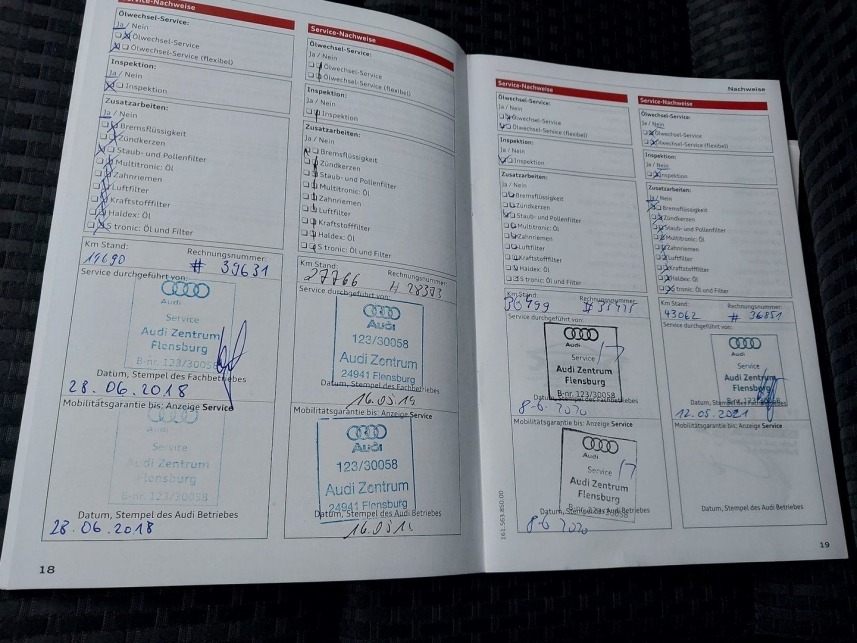 Service-Nachweise
Ölwechsel-Service:
Ja / Nein
Ölwechsel-Service
Ölwechsel-Service (flexibel)
Inspektion:
Ja / Nein
Inspektion
Zusatzarbeiten:
Ja / Nein
Bremsflüssigkeit
Zündkerzen
Staub- und Pollenfilter
Multitronic: Öl
Zahnriemen
Luftfilter
Kraftstofffilter
Haldex: Öl
S tronic: Öl und Filter
Km Stand: Rechnungsnummer:
19690 # 39631
Service durchgeführt von:
Audi
Service
Audi Zentrum
Flensburg
B-nr. 123/30058
Datum, Stempel des Fachbetriebes
28.06.2018
Mobilitätsgarantie bis: Anzeige Service
Audi
Service
Audi Zentrum
Flensburg
B-nr. 123/30058
Datum, Stempel des Audi Betriebes
28.06.2018
18
Service-Nachweise
Ölwechsel-Service:
Ja / Nein
Ölwechsel-Service
Ölwechsel-Service (flexibel)
Inspektion:
Ja / Nein
Inspektion
Zusatzarbeiten:
Ja / Nein
Bremsflüssigkeit
Zündkerzen
Staub- und Pollenfilter
Multitronic: Öl
Zahnriemen
Luftfilter
Kraftstofffilter
Haldex: Öl
S tronic: Öl und Filter
Km Stand: Rechnungsnummer:
27766 # 28373
Service durchgeführt von:
Audi
123/30058
Audi Zentrum
24941 Flensburg
Datum, Stempel des Fachbetriebes
16.05.19
Mobilitätsgarantie bis: Anzeige Service
Audi
123/30058
Audi Zentrum
24941 Flensburg
Datum, Stempel des Audi Betriebes
16.05.19
Service-Nachweise
Ölwechsel-Service:
Ja / Nein
Ölwechsel-Service
Ölwechsel-Service (flexibel)
Inspektion:
Ja / Nein
Inspektion
Zusatzarbeiten:
Ja / Nein
Bremsflüssigkeit
Zündkerzen
Staub- und Pollenfilter
Multitronic: Öl
Zahnriemen
Luftfilter
Kraftstofffilter
Haldex: Öl
S tronic: Öl und Filter
Km Stand: Rechnungsnummer:
Service durchgeführt von:
Audi
Service
Audi Zentrum
Flensburg
B-nr. 123/30058
Datum, Stempel des Fachbetriebes
8-6-2020
Mobilitätsgarantie bis: Anzeige Service
Audi
Service
Audi Zentrum
Flensburg
B-nr. 123/30058
Datum, Stempel des Audi Betriebes
8-6-2020
161.563.850.00
Nachweise
Service-Nachweise
Ölwechsel-Service:
Ja / Nein
Ölwechsel-Service
Ölwechsel-Service (flexibel)
Inspektion:
Ja / Nein
Inspektion
Zusatzarbeiten:
Ja / Nein
Bremsflüssigkeit
Zündkerzen
Staub- und Pollenfilter
Multitronic: Öl
Zahnriemen
Luftfilter
Kraftstofffilter
Haldex: Öl
S tronic: Öl und Filter
Km Stand: Rechnungsnummer:
43062 # 36851
Service durchgeführt von:
Audi
Service
Audi Zentrum
Flensburg
B-nr. 123/30058
Datum, Stempel des Fachbetriebes
12.05.2021
Mobilitätsgarantie bis: Anzeige Service
Datum, Stempel des Audi Betriebes
19